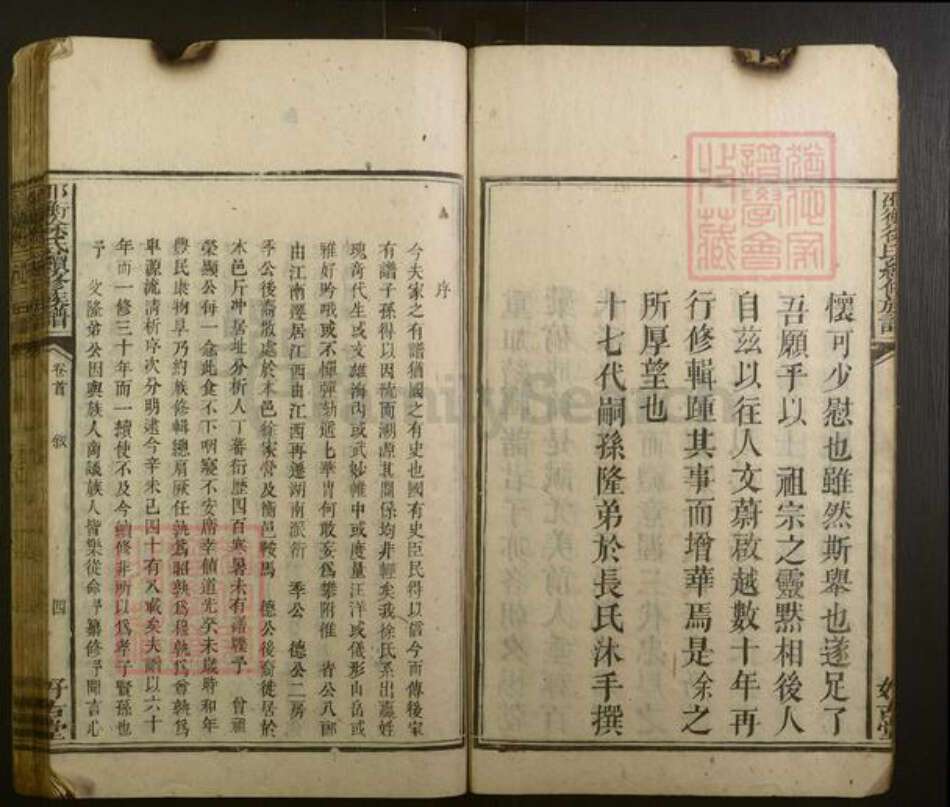 懷可少慰也雖然斯舉也遂足了
吾願乎以 祖宗之靈黙相後人
自茲以往人文蔚啟越數十年再
行修輯踵其事而增華焉是余之
所厚望也
十七代嗣孫隆弟於長氏沐手撰
序
今夫家之有譜猶國之有史也國有史臣民得以信今而傳後家
有譜子孫得以因流而溯源其關係均非輕矣我徐氏系出嬴姓
瑰奇代生或文雄海內或武妙帷中或度量汪洋或儀形山岳或
雅好吟哦或不憚彈劾遙遙華胄何敢妄為攀附惟 省公八郎
由江南遷居江西由江西再遷湖南派衍 季公 德公二房
季公後裔散處於本邑徐家營及衡邑鞍馬 德公後裔徙居於
本邑斤冲基址分析人丁蕃衍歷四百寒暑未有譜牒予 曾祖
榮顯公每一念此食不下咽寢不安席幸值道光癸未歲時和年
豐民康物阜乃約族修輯總肩厥任孰為昭孰為穆孰為尊孰為
卑源流清析序次分明逮今辛未已四十有八載矣夫譜以六十
年而一修三十年而一續使不及今續修非所以為孝子賢孫也
予 父隆弟公因與族人商議族人皆樂從命予纂修予聞言心
卷首 敘
四
好古堂